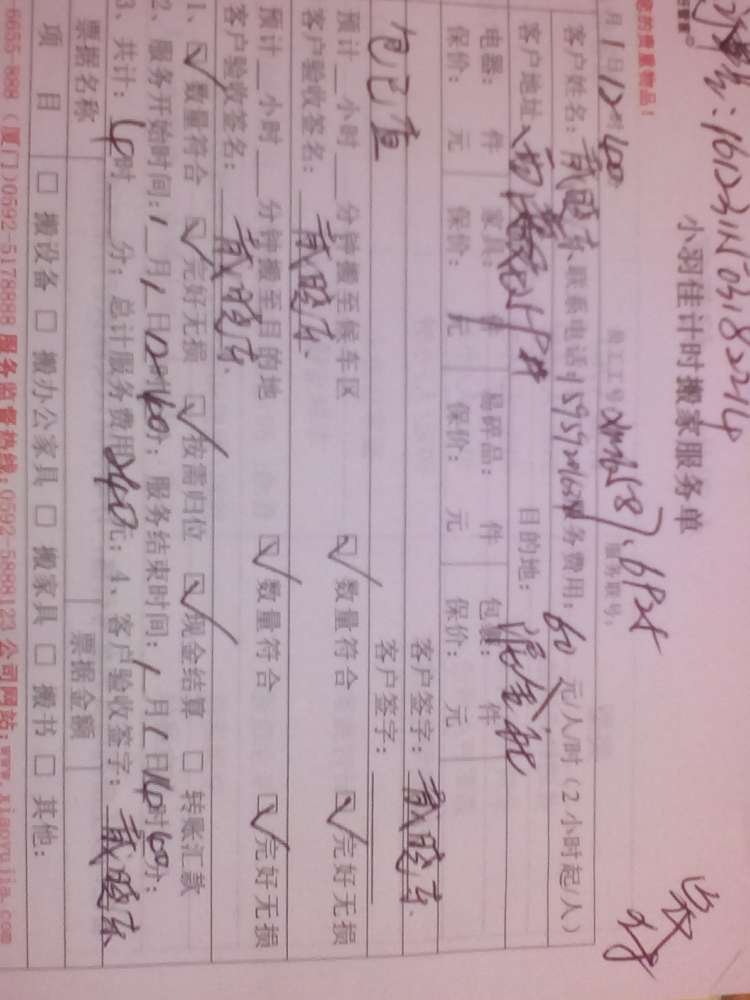 您的贵重物品！
161231N03182214
小羽佳计时搬家服务单
员工工号： 服务账号：
月1日12时00
客户姓名：戴晓东 联系电话：服务费用：60元/人/时（2小时起/人）
客户地址： 目的地：
电器： 件 家具： 件 易碎品： 件 包 件
保价： 元 保价： 元 保价： 元 保价： 元
客户签字：戴晓东
客户签字：
预计__小时__分钟搬至候车区 ☑数量符合 ☑完好无损
客户验收签名：戴晓东
预计__小时__分钟搬至目的地 ☑数量符合 ☑完好无损
客户验收签名：戴晓东
1、☑数量符合 ☑完好无损 ☑按需归位 ☑现金结算 □转账汇款
2、服务开始时间：1月1日12时00分；服务结束时间：1月1日14时00分；
3、共计：4时__分；总计服务费用240元；4、客户验收签字：戴晓东
票据名称 票据金额
项目 □搬设备 □搬办公家具 □搬家具 □搬书 □其他：
6655-888（厦门）0592-5178888 服务监督热线：0592-5888123 公司网站：www.xiaoyujia.com